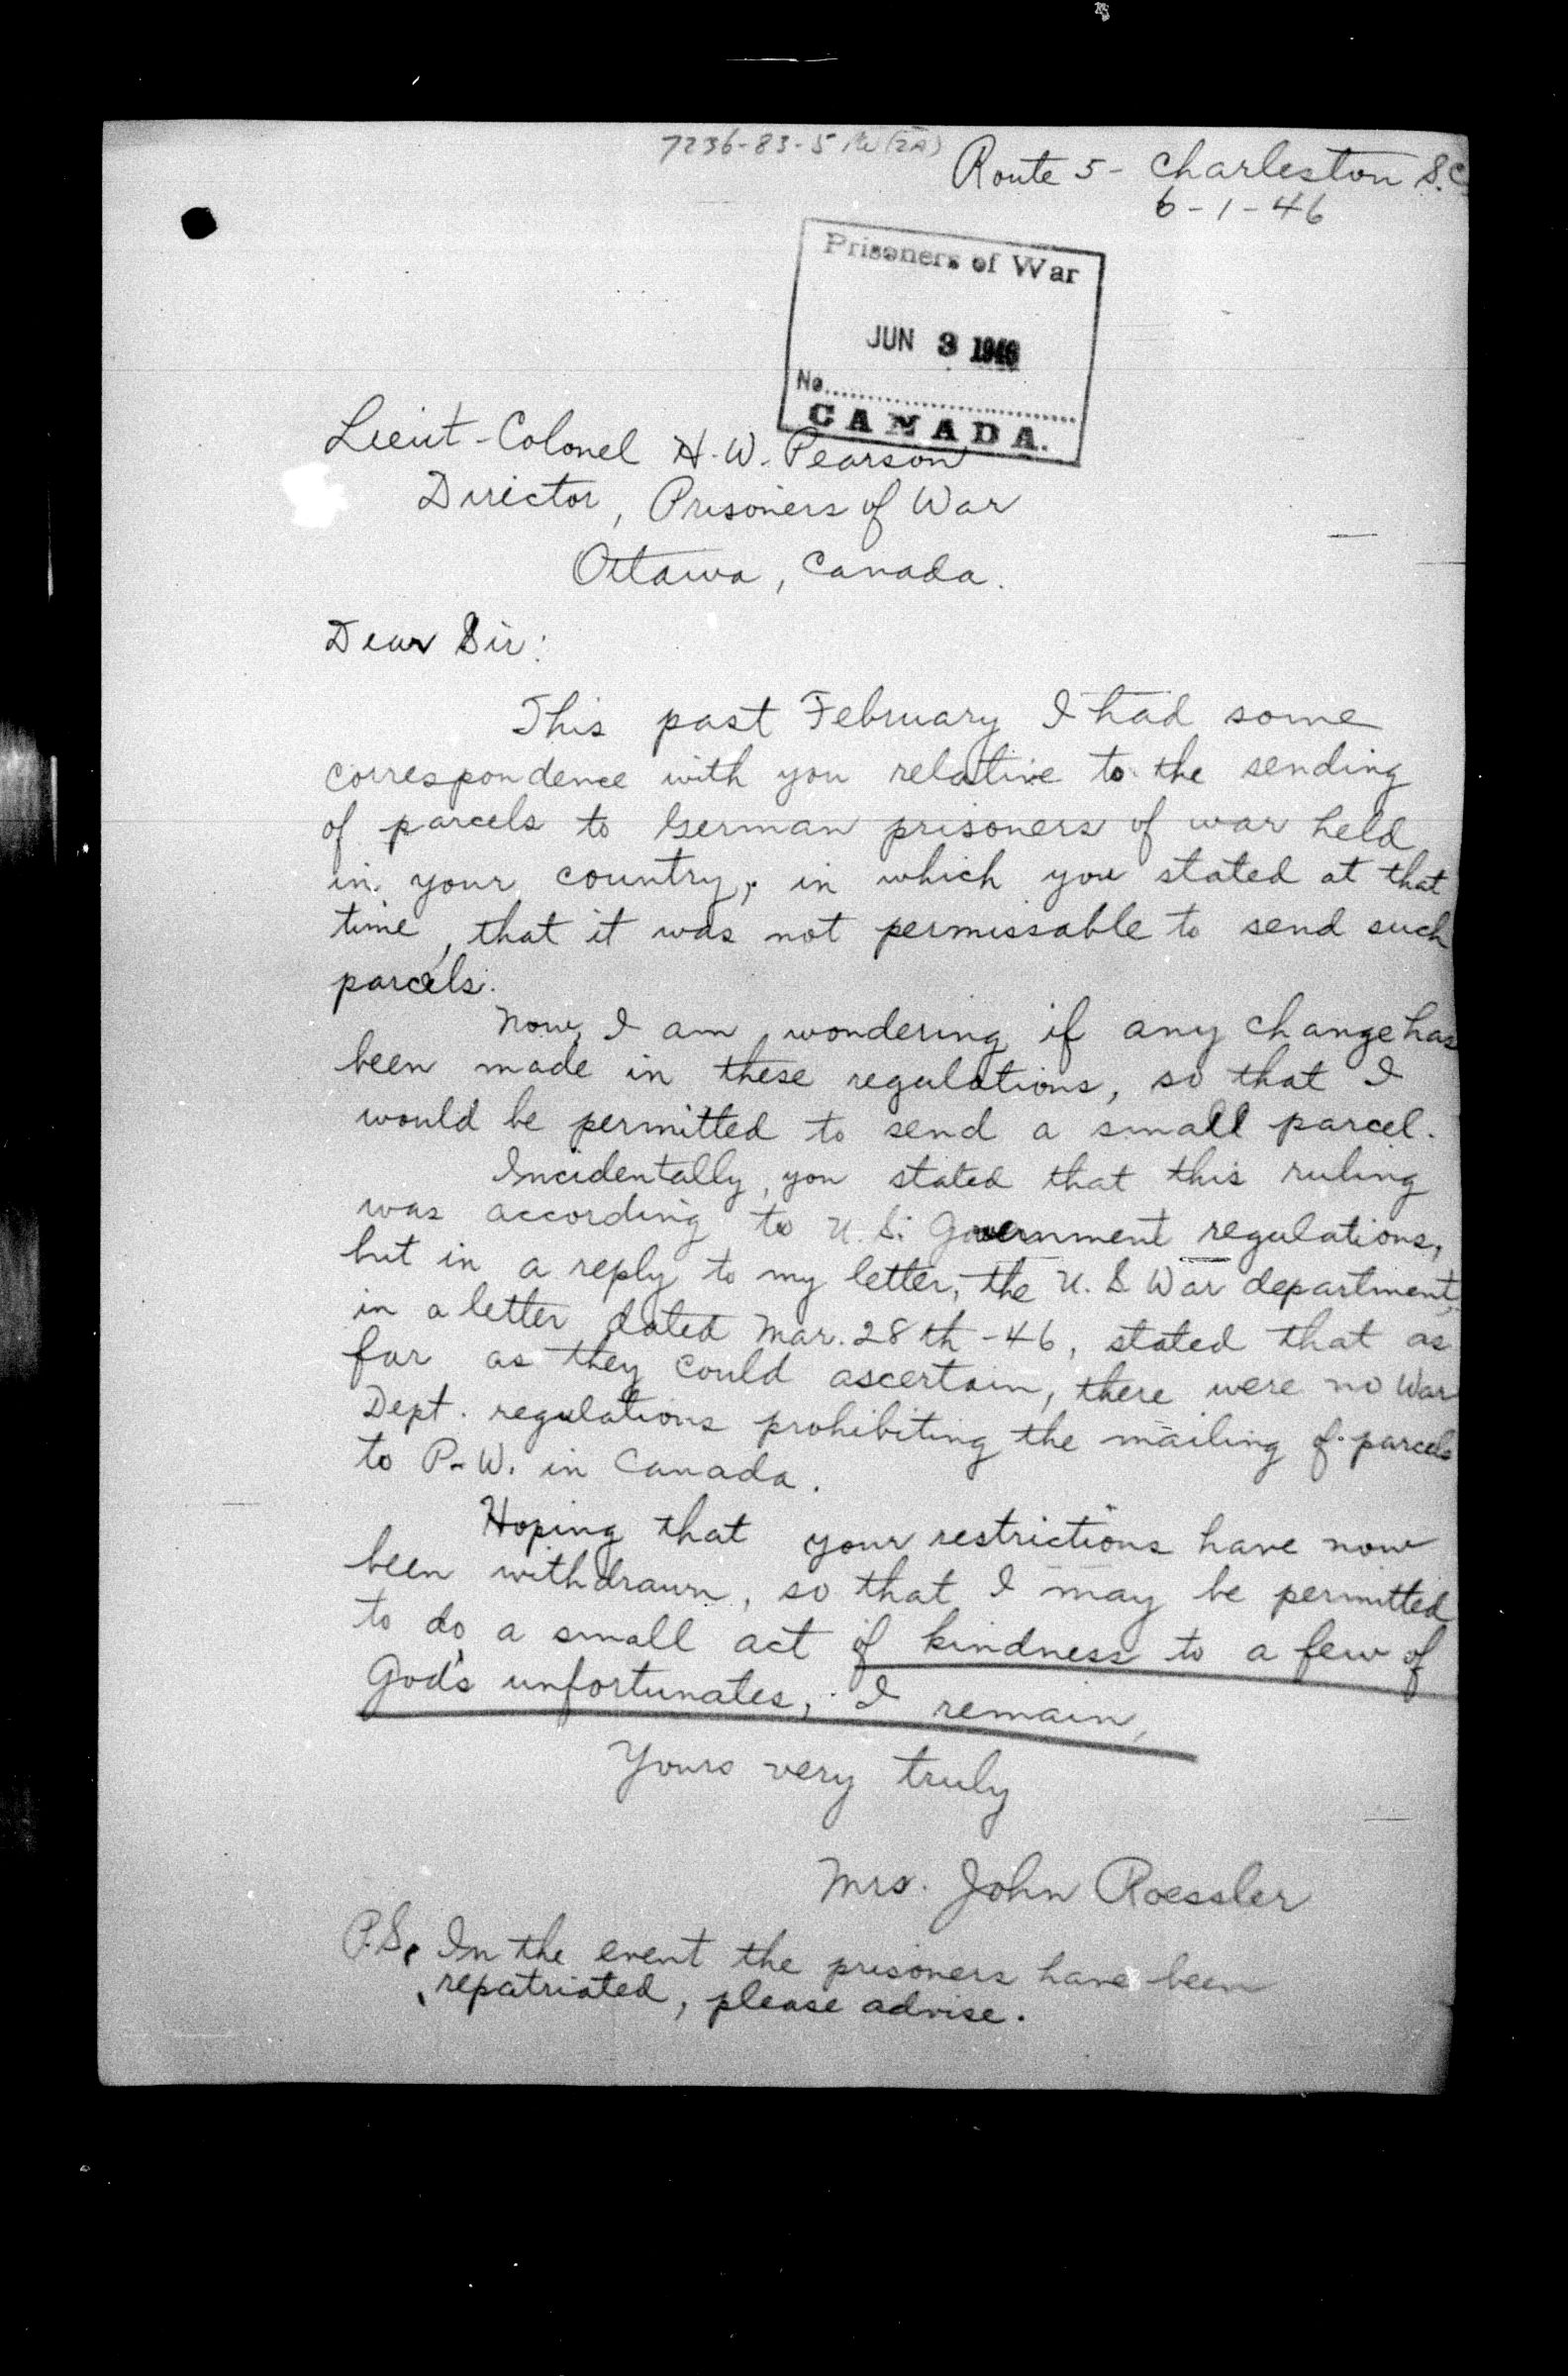 7236-83-5
Route 5 - Charleston S.C.
6-1-46
Prisoners of War
JUN 3 1946
No.
CANADA.
Lieut-Colonel H.W. Pearson
Director, Prisoners of War
Ottawa, Canada.
Dear Sir:
This past February I had some
correspondence with you relative to the sending
of parcels to German prisoners of war held
in your country, in which you stated at that
time, that it was not permissable to send such
parcels.
Now, I am wondering if any change has
been made in these regulations, so that I
would be permitted to send a small parcel.
Incidentally, you stated that this ruling
was according to U.S. Government regulations,
but in a reply to my letter, the U.S War department,
in a letter dated Mar. 28th -46, stated that as
far as they could ascertain, there were no War
Dept. regulations prohibiting the mailing of parcels
to P.W. in Canada.
Hoping that your restrictions have now
been withdrawn, so that I may be permitted
to do a small act of kindness to a few of
God's unfortunates, I remain,
Yours very truly
Mrs. John Roessler
P.S. In the event the prisoners have been
repatriated, please advise.